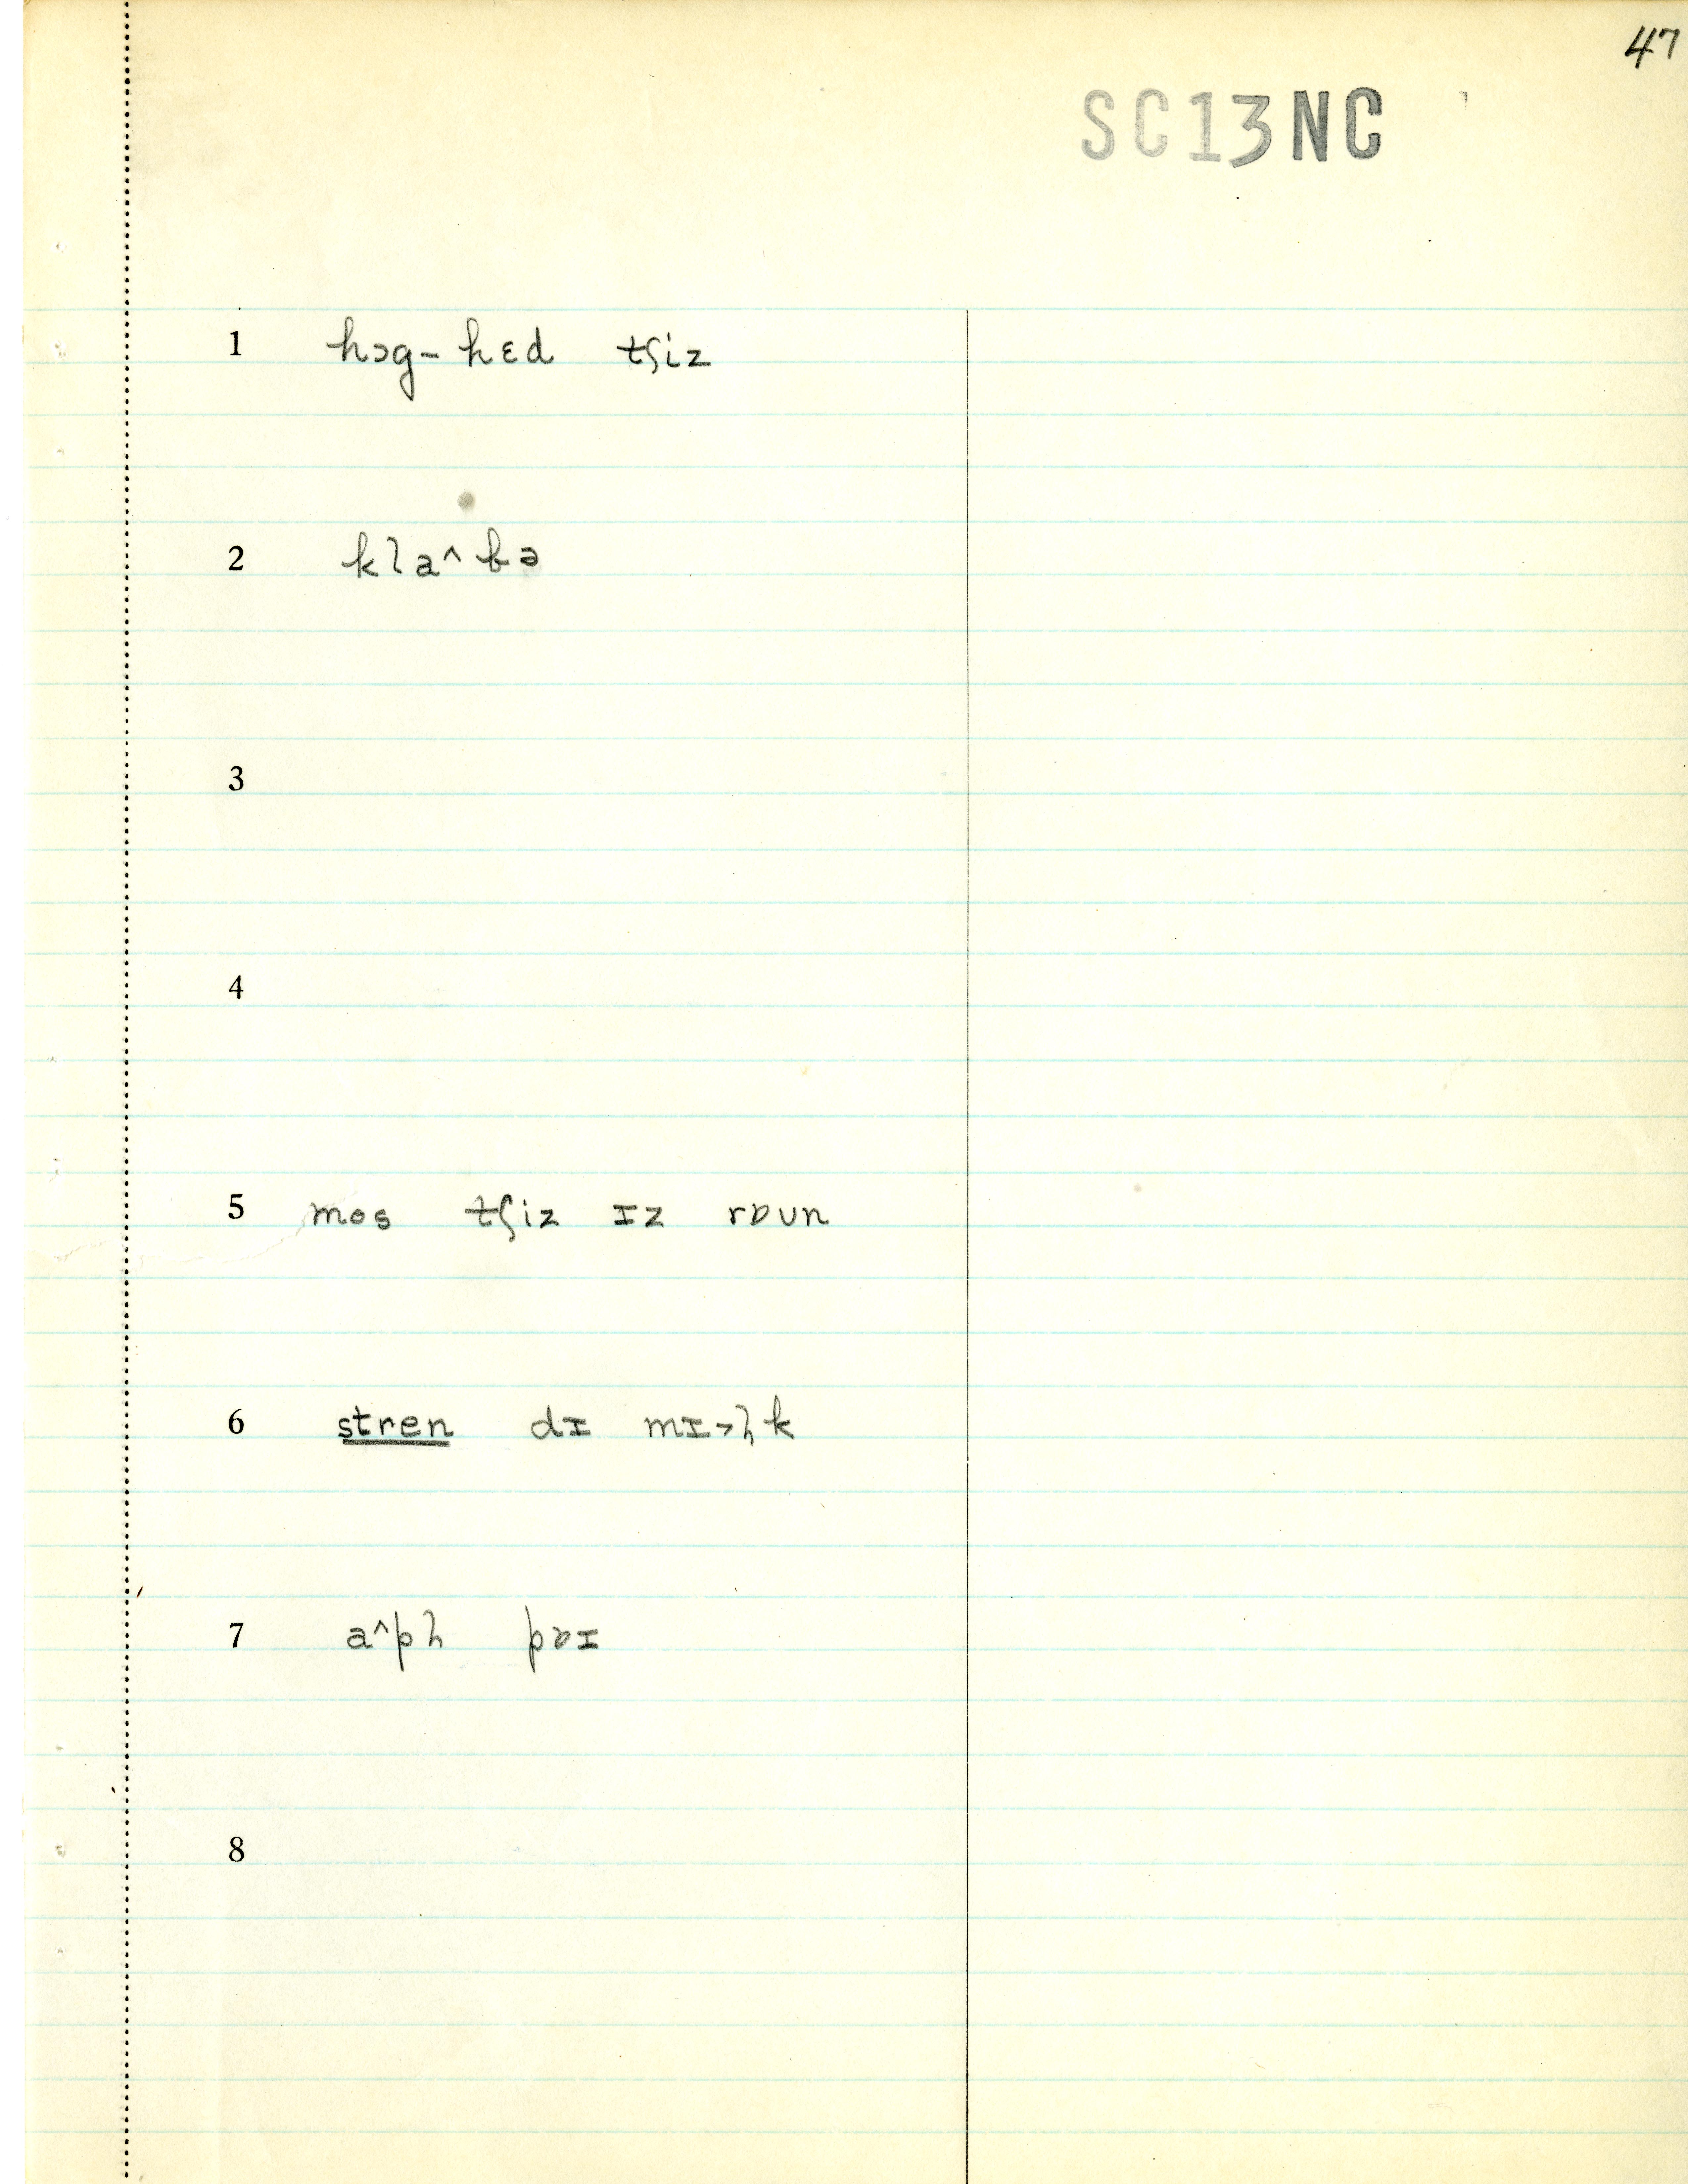 47
SC13NC
1 hɔg-hɛd tʃiz
2 klaˆbə
3
4
5 mos tʃiz ɪz rɒun
6 stren dɪ mɪ˃lk
7 aˆpl pɒɪ
8